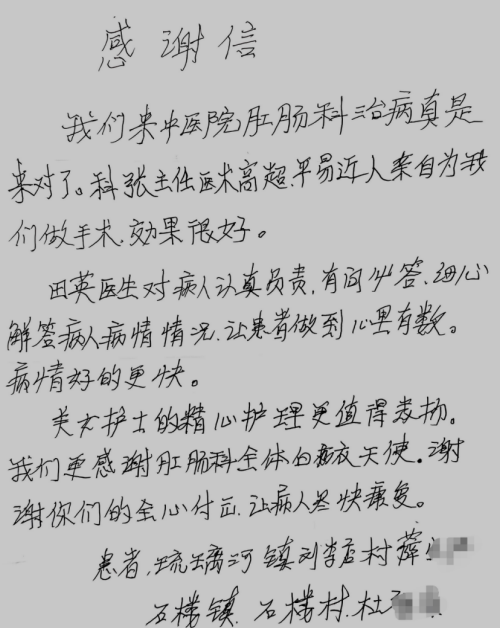 感谢信
我们来中医院肛肠科治病真是
来对了。科张主任医术高超.平易近人亲自为我
们做手术.效果很好。
田英医生对病人认真负责,有问必答.细心
解答病人病情情况.让患者做到心里有数。
病情好的更快。
美女护士的精心护理更值得表扬。
我们更感谢肛肠科全体白衣天使.谢
谢你们的全心付出.让病人尽快康复。
患者,琉璃河镇刘李店村薛
石楼镇.石楼村.杜